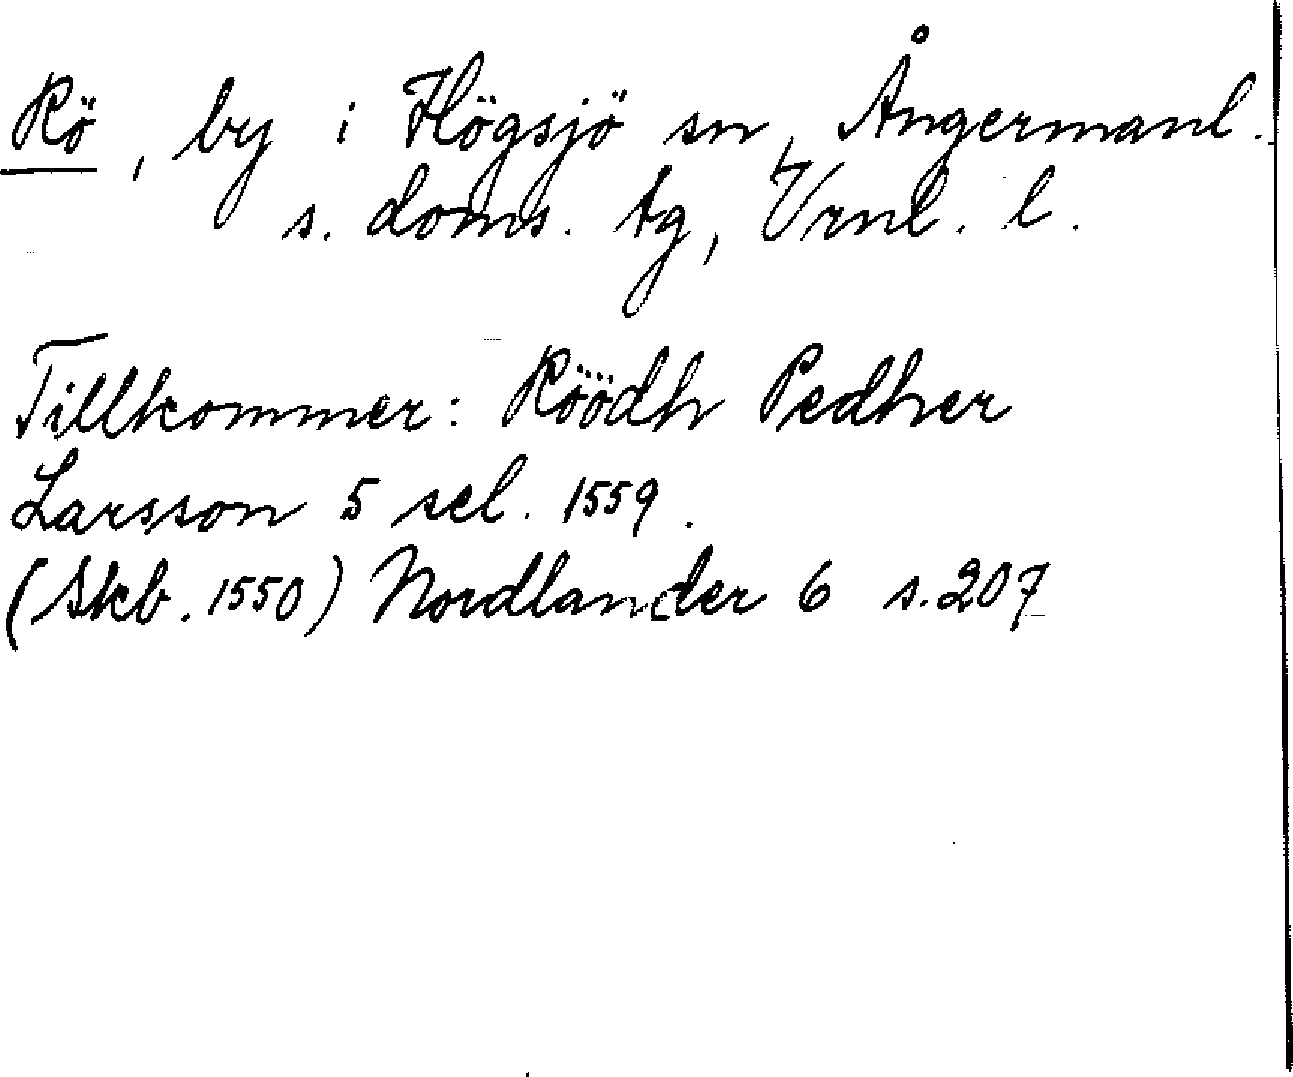 Rö, by i Högsjö sn, Ångermanl.
s. doms. tg, Vrnl. l.
Tillkommer: Röödh Pedher
Larsson 5 sel. 1559.
(Skb. 1550) Nordlander 6 s. 207